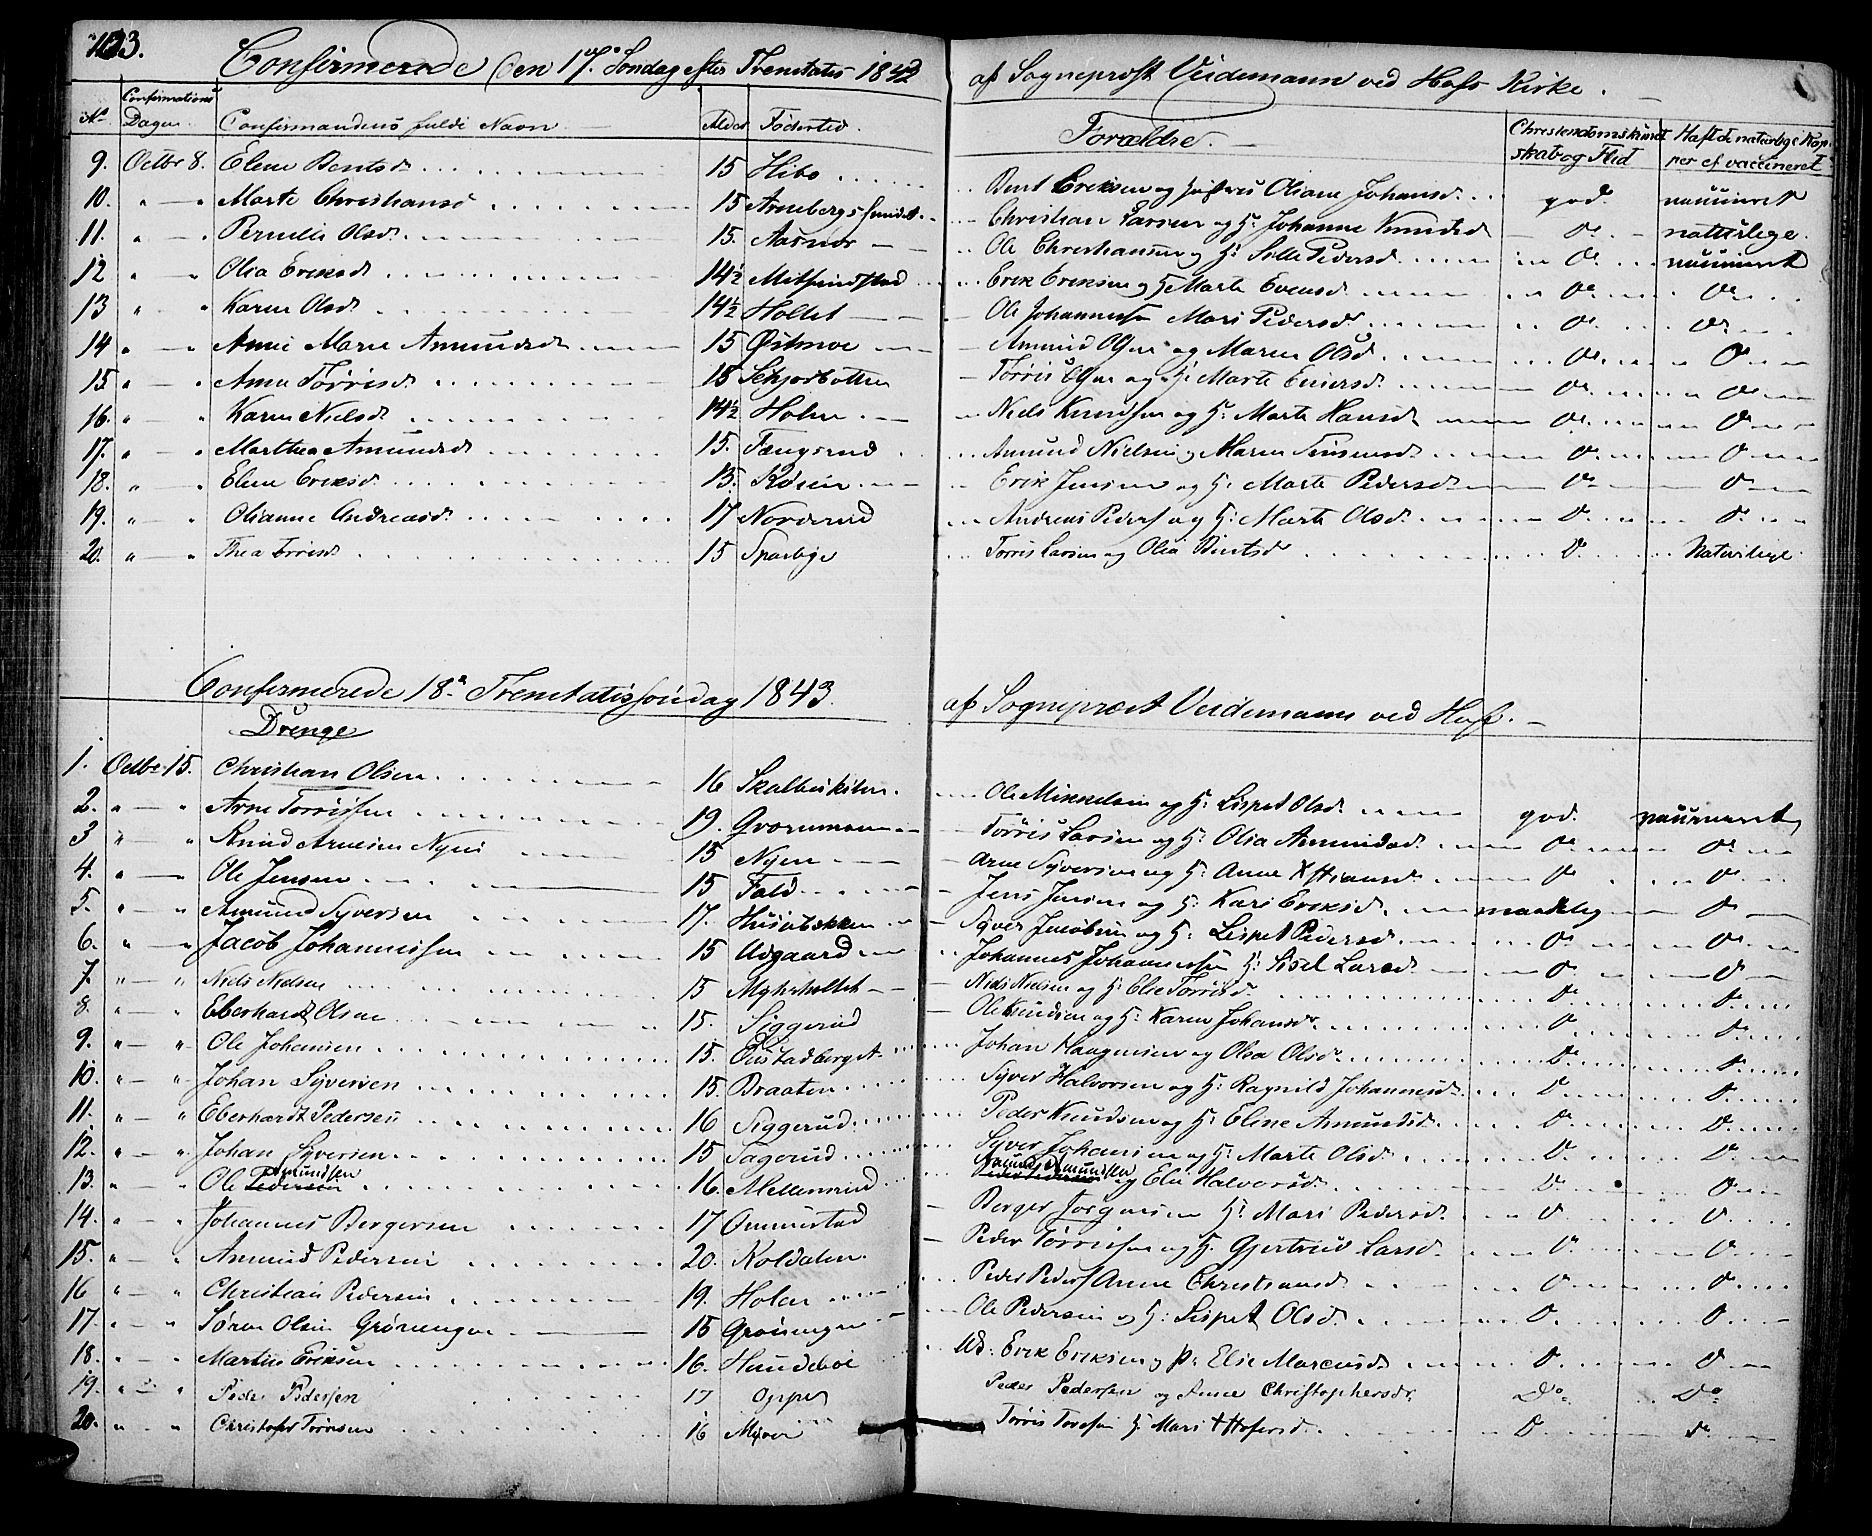 103.
Confirmerede den 17de Søndag efter Trenitatis 1842 af Sognepræst Veidemann ved Hofs Kirke.
No Confirmations Dagen. Confirmandens fulde Navn Alder Fødested. Forældre. Christendomskundskab og Flid Haft de naturlige Kopper el vaccineret
9. Octbr 8. Elene Bentsd 15 Hibo Bent Eriksen og Oliane Johansd. god. vaccineret
10. " — " Marte Christiansd 15 Arnebergs Christian Larsen og H: Johanne Knudsd Do naturlige.
11. " — " Pernelle Olsd. 15. Aasnæs Ole Christiansen og H: Pedersd Do vaccineret
12 " — " Olia Eriksd 14½ Erik Eriksen og H Marte Evensd. Do Do
13 " — " Karen Olsd. 14½ Holtet Ole Johannessen Mari Pedersd. Do Do
14 " — " Anne Marie Amundsd. 15 Østmoe Amund Olsen og Maren Olsd. Do Do
15 " — " Anne Tørrisd. 15 Skjærbotten Tørris Olsen og H: Marte Einersd. Do Do
16. " — " Karen Nielsd. 14½ Holen Niels Knudsen og H: Marte Hansd. Do Do
17. " — " Marthea Amundsd. 15. Fangsrud Amund Nielsen og Maren Do Do
18. " — " Elene Eriksd. 15. Erik Jensen og H: Marte Pedersd. Do Do
19. " — " Olianne Andreasd. 17 Norderud Andreas Peders og H: Marte Olsd. Do Do
20. " — " Thea Tørrisd 15 Sparbye Tørris Larsen og Olia Bentsd Do Naturlige
Confirmerede 18de Trenitatis søndag 1843. af Sognepræst Veidemann ved Hof.
Drenge
1. Octbr. 15. Christian Olsen 16 Ole Mikkelsen og H: Lispet Olsd. god. vaccineret
2. " — " Arne Tørrissen 19. Qværnmoen Tørris Larsen og H: Olia Amundsd. Do Do
3 " — " Knud Arnesen Nyen 15 Nyen Arne Syversen og H: Anne Xstiansd. Do Do
4. " — " Ole Jensen 15 Fald Jens Jensen og H: Kari Eriksd. maadelig Do
5. " — " Amund Syversen 17. Husubakken Syver Jacobsen og H: Lispet Pedersd. Do Do
6. " — " Jacob Johannessen 15 Udgaard Johannes Johannessen H: Sisel Larsd. Do Do
7. " — " Niels Nielsen 15 Myhrholtet Niels Nielsen og H: Elie Tørrisd Do Do
8. " — " Eberhardt Olsen 15. Siggerud Ole Knudsen og H: Karen Johansd. Do Do
9. " — " Ole Johansen 15. Johan Haagensen og Olea Olsd. Do Do
10. " — " Johan Syversen 15 Braaten Syver Halvorsen og H: Ragnild Johannesd. Do Do
11. " — " Eberhardt Pedersen 16 Siggerud. Peder Knudsen og H: Elene Amundsd. Do Do
12. " — " Johan Syversen 15 Sagerud Syver Johansen og H: Marte Olsd. Do Do
13. " — " Ole Pedersen Amundsen 16. Mellemrud Amund Amundsen og Elie Halvorsd. Do Do
14. " — " Johannes Bergersen 17 Ommestad Berger Jørgensen H: Mari Pedersd. Do Do
15. " — " Amund Pedersen 20. Koldalen. Peder Tørrissen og H. Gjertrud Larsd. Do Do
16 " — " Christian Pedersen 19. Holen Peder Peders Anne Christiansd Do Do
17. " — " Søren Olsen Grønengen 15 Grønengen Ole Pedersen og H: Lispet Olsd. Do Do
18. " — " Martin Eriksen 16. Hundeboe Ud: Erik Eriksen og P: Elie Marcusd. Do Do
19. " — " Peder Pedersen 17 Oppset Peder Pedersen og Anne Christophersdr. Do Do
20. " — " Christofer Tørrisen 16 Moen Tørris H: Mari Do Do